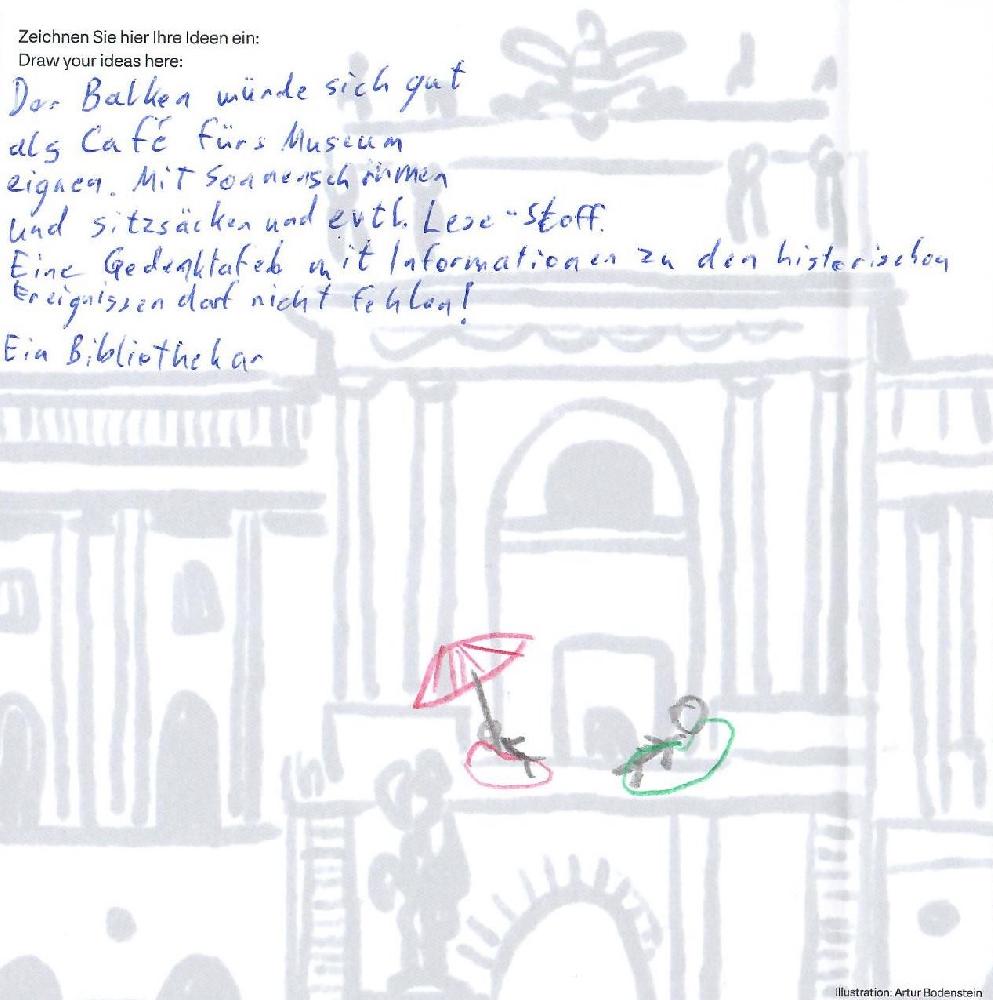 Zeichnen Sie hier Ihre Ideen ein:
Draw your ideas here:
Der Balken würde sich gut
als Café fürs Museum
eignen. Mit Sonnenschirmen
und Sitzsäcken und evtl. Lese-Stoff.
Eine Gedenktafel mit Informationen zu den historischen
Ereignissen darf nicht fehlen!
Ein Bibliothekar
Illustration: Artur Bodenstein